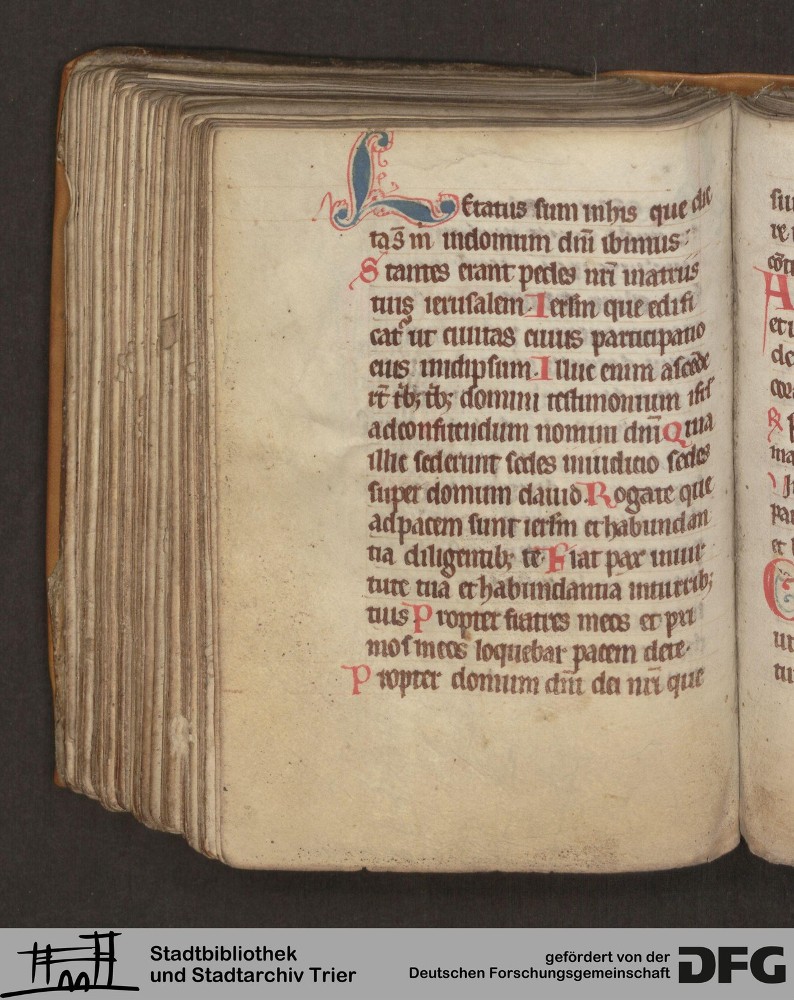 Letatus sum inhis que dic
ta sunt m indomum dñi ibimus
Stantes erant pedes nr̃i inatriis
tuis ierusalem. Ierlm̃ que edifi
cat᷑ ut ciuitas cuius participatio
eius inidipsum. Illuc enim ascẽde
rt̃ tb᷒; tb᷒; domini testimonium isrl̃
adconfitendum nomini dñi Quia
illic sederunt sedes iniudicio sedes
super domum dauid. Rogate que
adpacem sunt ierlm̃ et habundan
tia diligentib; te Fiat pax inuir
tute tua et habundantia inturrib;
tuis Propter fratres meos et pxi
mos meos loquebar pacem dete.
Propter domum dñi dei nr̃i que
Stadtbibliothek
und Stadtarchiv Trier
gefördert von der
Deutschen Forschungsgemeinschaft
DFG